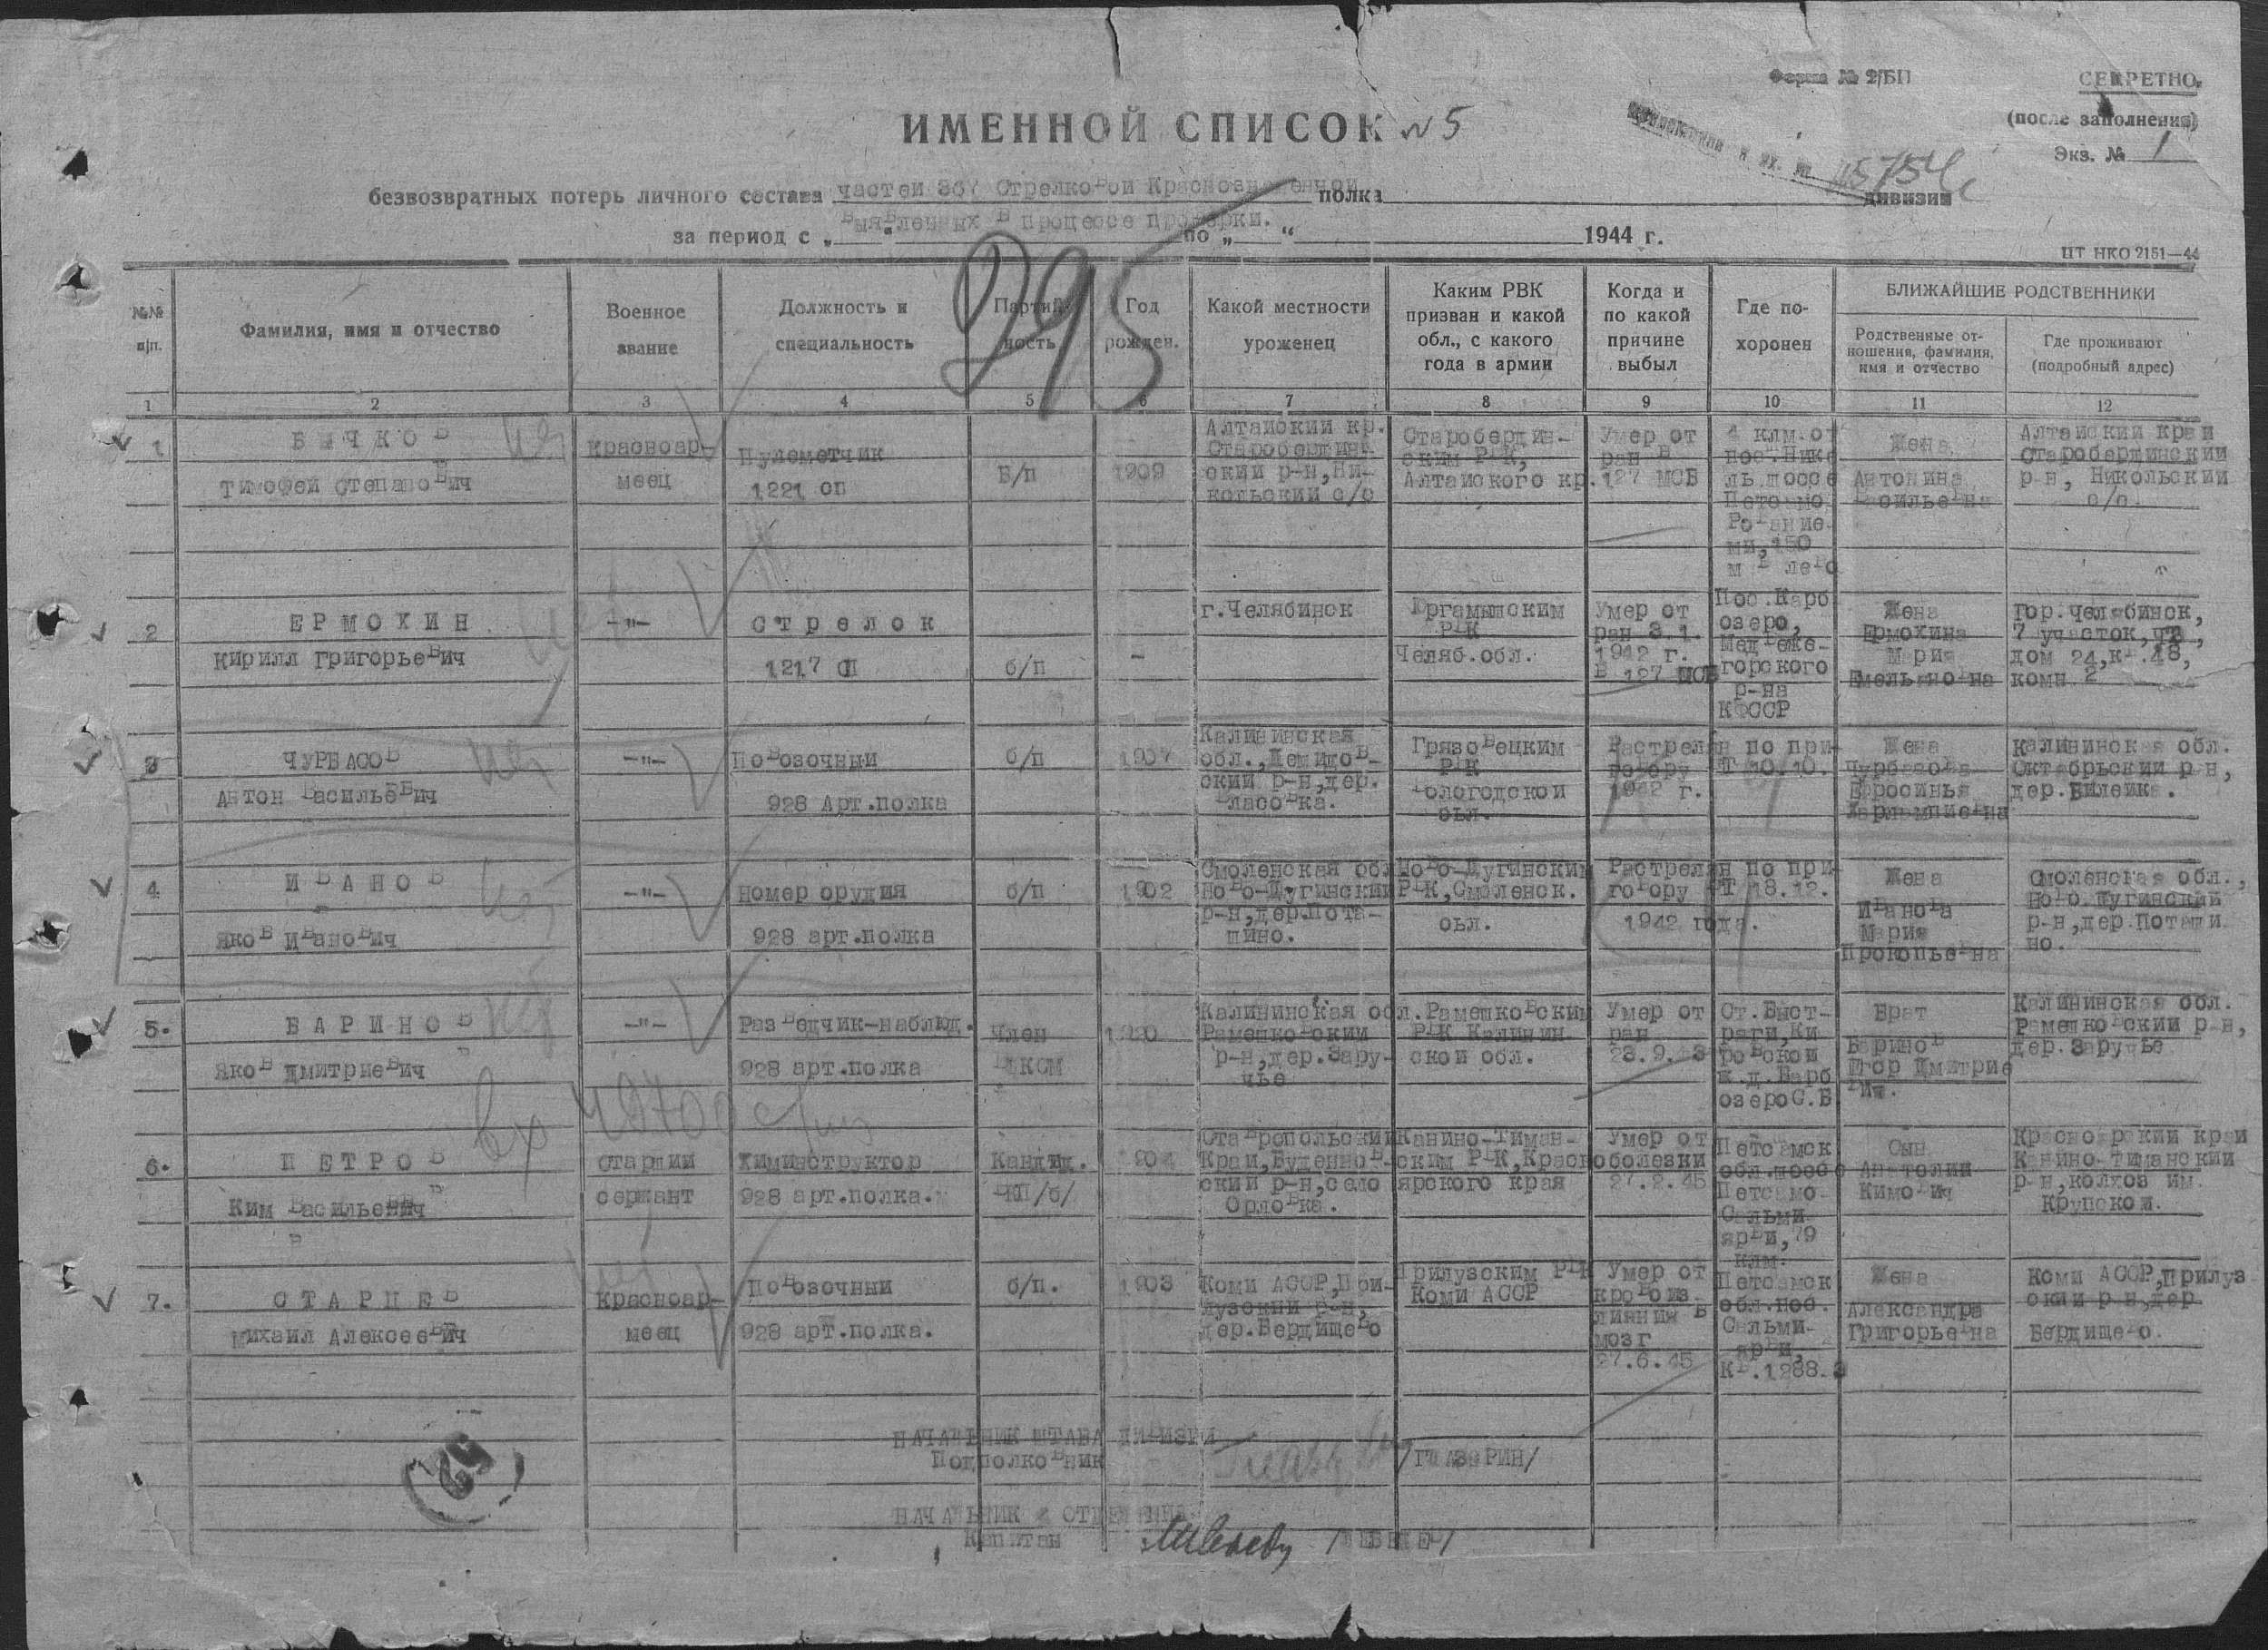 Форма № 2/БП
СЕКРЕТНО.
(после заполнения)
Экз. № 1
ИМЕННОЙ СПИСОК № 5
безвозвратных потерь личного состава частей 367 Стрелковой Краснознаменной полка дивизии
выявленных в процессе проверки.
за период с „ “ по „ “ 1944 г.
ЦТ НКО 2151—44
295
№№ п/п.
Фамилия, имя и отчество
Военное звание
Должность и специальность
Партий- ность
Год рожден.
Какой местности уроженец
Каким РВК призван и какой обл., с какого года в армии
Когда и по какой причине выбыл
Где по- хоронен
БЛИЖАЙШИЕ РОДСТВЕННИКИ
Родственные от- ношения, фамилия, имя и отчество
Где проживают (подробный адрес)
1 2 3 4 5 6 7 8 9 10 11 12
1
БЫЧКОВ
Тимофей Степанович
Красноар- меец
Пулеметчик
1221 сп
Б/п
1909
Алтайский кр.
Старобердин
ский р-н, Ни-
кольский с/с
Старобердин-
ским РВК,
Алтайского кр.
Умер от
ран в
127 МСБ
4 клм.от
пос.Нике
ль шоссе
Петсамо
Рование
ми,150
м влево
Жена
Антонина
Васильевна
Алтайский край
Старобердинский
р-н, Никольский
с/с.
2
ЕРМОХИН
Кирилл Григорьевич
-"-
Стрелок
1217 СП
б/п
-
г.Челябинск
Юргамышским
РВК
Челяб.обл.
Умер от
ран 3.1.
1942 г.
В 127 МСБ
Пос.Карб
озеро,
Медвеже-
горского
р-на
КФССР
Жена
Ермохина
Мария
Емельяновна
Гор.Челябинск,
7 участок,
дом 24,кв.48,
комн 2
3
ЧУРБАСОВ
Антон Васильевич
-"-
Повозочный
928 Арт.полка
б/п
1907
Калининская
обл.,Демидов-
ский р-н,дер.
Власовка.
Грязовецким
РВК
Вологодской
обл.
Растрелян по при-
говору ВТ 10.10.
1942 г.
Жена
Чурбасова
Ефросинья
Харлампиевна
Калининская обл.
Октябрьский р-н,
дер.Билейка.
4
ИВАНОВ
Яков Иванович
-"-
номер орудия
928 арт.полка
б/п
1902
Смоленская обл
Ново-Дугинский
р-н,дер.Пота-
шино.
Ново-Дугинским
РВК,Смоленск.
обл.
Растрелян по при-
говору ВТ 18.12.
1942 года.
Жена
Иванова
Мария
Прокопьевна
Смоленская обл.,
Ново Дугинский
р-н,дер.Поташи
но.
5.
БАРИНОВ
Яков Дмитриевич
-"-
Разведчик-наблюд.
928 арт.полка
Член
ВЛКСМ
1920
Калининская обл.
Рамешковский
р-н,дер.Зару-
чье
Рамешковским
РВК Калинин
ской обл.
Умер от
ран
23.9.43
Ст.Быст-
ряги,Ки
ровской
ж.д.Варб
озеро С.Б
Брат
Баринов
Егор Дмитрие
вич.
Калининская обл.
Рамешковский р-н,
дер.Заручье
6.
ПЕТРОВ
Ким Васильевич
старший
сержант
Химинструктор
928 арт.полка.
Кандид.
ВКП/б/
1904
Ставропольский
Край,Буденнов-
ский р-н,село
Орловка.
Канино-Тиман-
ским РВК,Красно
ярского края
Умер от
болезни
27.2.45
Петсамск
обл.шоссе
Петсамо-
Сальми
ярви,79
клм.
Сын
Анатолий
Кимович
Красноярский край
Канино-Тиманский
р-н,колхоз им.
Крупской.
7.
СТАРЦЕВ
Михаил Алексеевич
Красноар-
меец
Повозочный
928 арт.полка.
б/п.
1903
Коми АССР,При-
лузский р-н,
дер.Бердищево
Прилузским РВК
Коми АССР
Умер от
кровоиз-
лияния в
мозг
27.6.45
Петсамск
обл.пос.
Сальми-
ярви,
Кв.1288.
Жена
Александра
Григорьевна
Коми АССР,Прилуз
ский р-н,дер
Бердищево.
НАЧАЛЬНИК ШТАБА ДИВИЗИИ
Подполковник
/ГЛАЗЕРИН/
НАЧАЛЬНИК ОТДЕЛЕНИЯ
Капитан